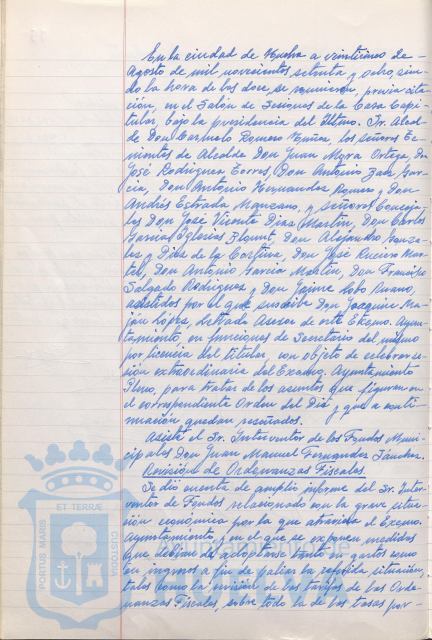 En la ciudad de Huelva a veinticinco de
Agosto de mil novecientos setenta y ocho, sien-
do la hora de las doce se reunieron, previa cita
ción, en el Salón de Sesiones de la Casa Capi-
tular, bajo la presidencia del Iltmo. Sr. Alcal-
de Don Carmelo Romero Núñez, los señores Te-
nientes de Alcalde Don Juan Mora Ortega, Don
José Rodríguez Torres, Don Antonio Gar-
cía, Don Antonio Hernández Romero y Don
Andrés Estrada Manzano, y señores Conceja-
les Don José Vicente Díaz Martín, Don Carlos
Iglesias Don Alejandro Gonza-
lez y Díez de la Cortina, Don José Rucero Mar-
tel, Don Antonio García Martín, Don Francisco
Salgado Rodríguez y Don Jaime Lobo Ruano,
asistidos por el que suscribe Don Joaquín Ma-
rín López, Letrado Asesor de este Excmo. Ayun-
tamiento, en funciones de Secretario del mismo
por licencia del titular, con objeto de celebrar se-
sión extraordinaria del Excmo. Ayuntamiento
Pleno, para tratar de los asuntos que figuran en
el correspondiente Orden del Día y que a conti-
nuación quedan reseñados.
Asiste el Sr. Interventor de los Fondos Muni-
cipales Don Juan Manuel Fernández Sánchez.
Revisión de Ordenanzas Fiscales
Se dió cuenta de amplio informe del Sr. Inter-
ventor de Fondos relacionado con la grave situa-
ción económica por la que atraviesa el Excmo.
Ayuntamiento, y en el que se exponen medidas
que deben de adoptarse tanto en gastos como
en ingresos a fin de paliar la referida situación,
tales como la revisión de las tarifas de las Orde-
nanzas Fiscales, sobre todo la de las tasas por
PORTUS MARIS
ET TERRÆ
CUSTODIA